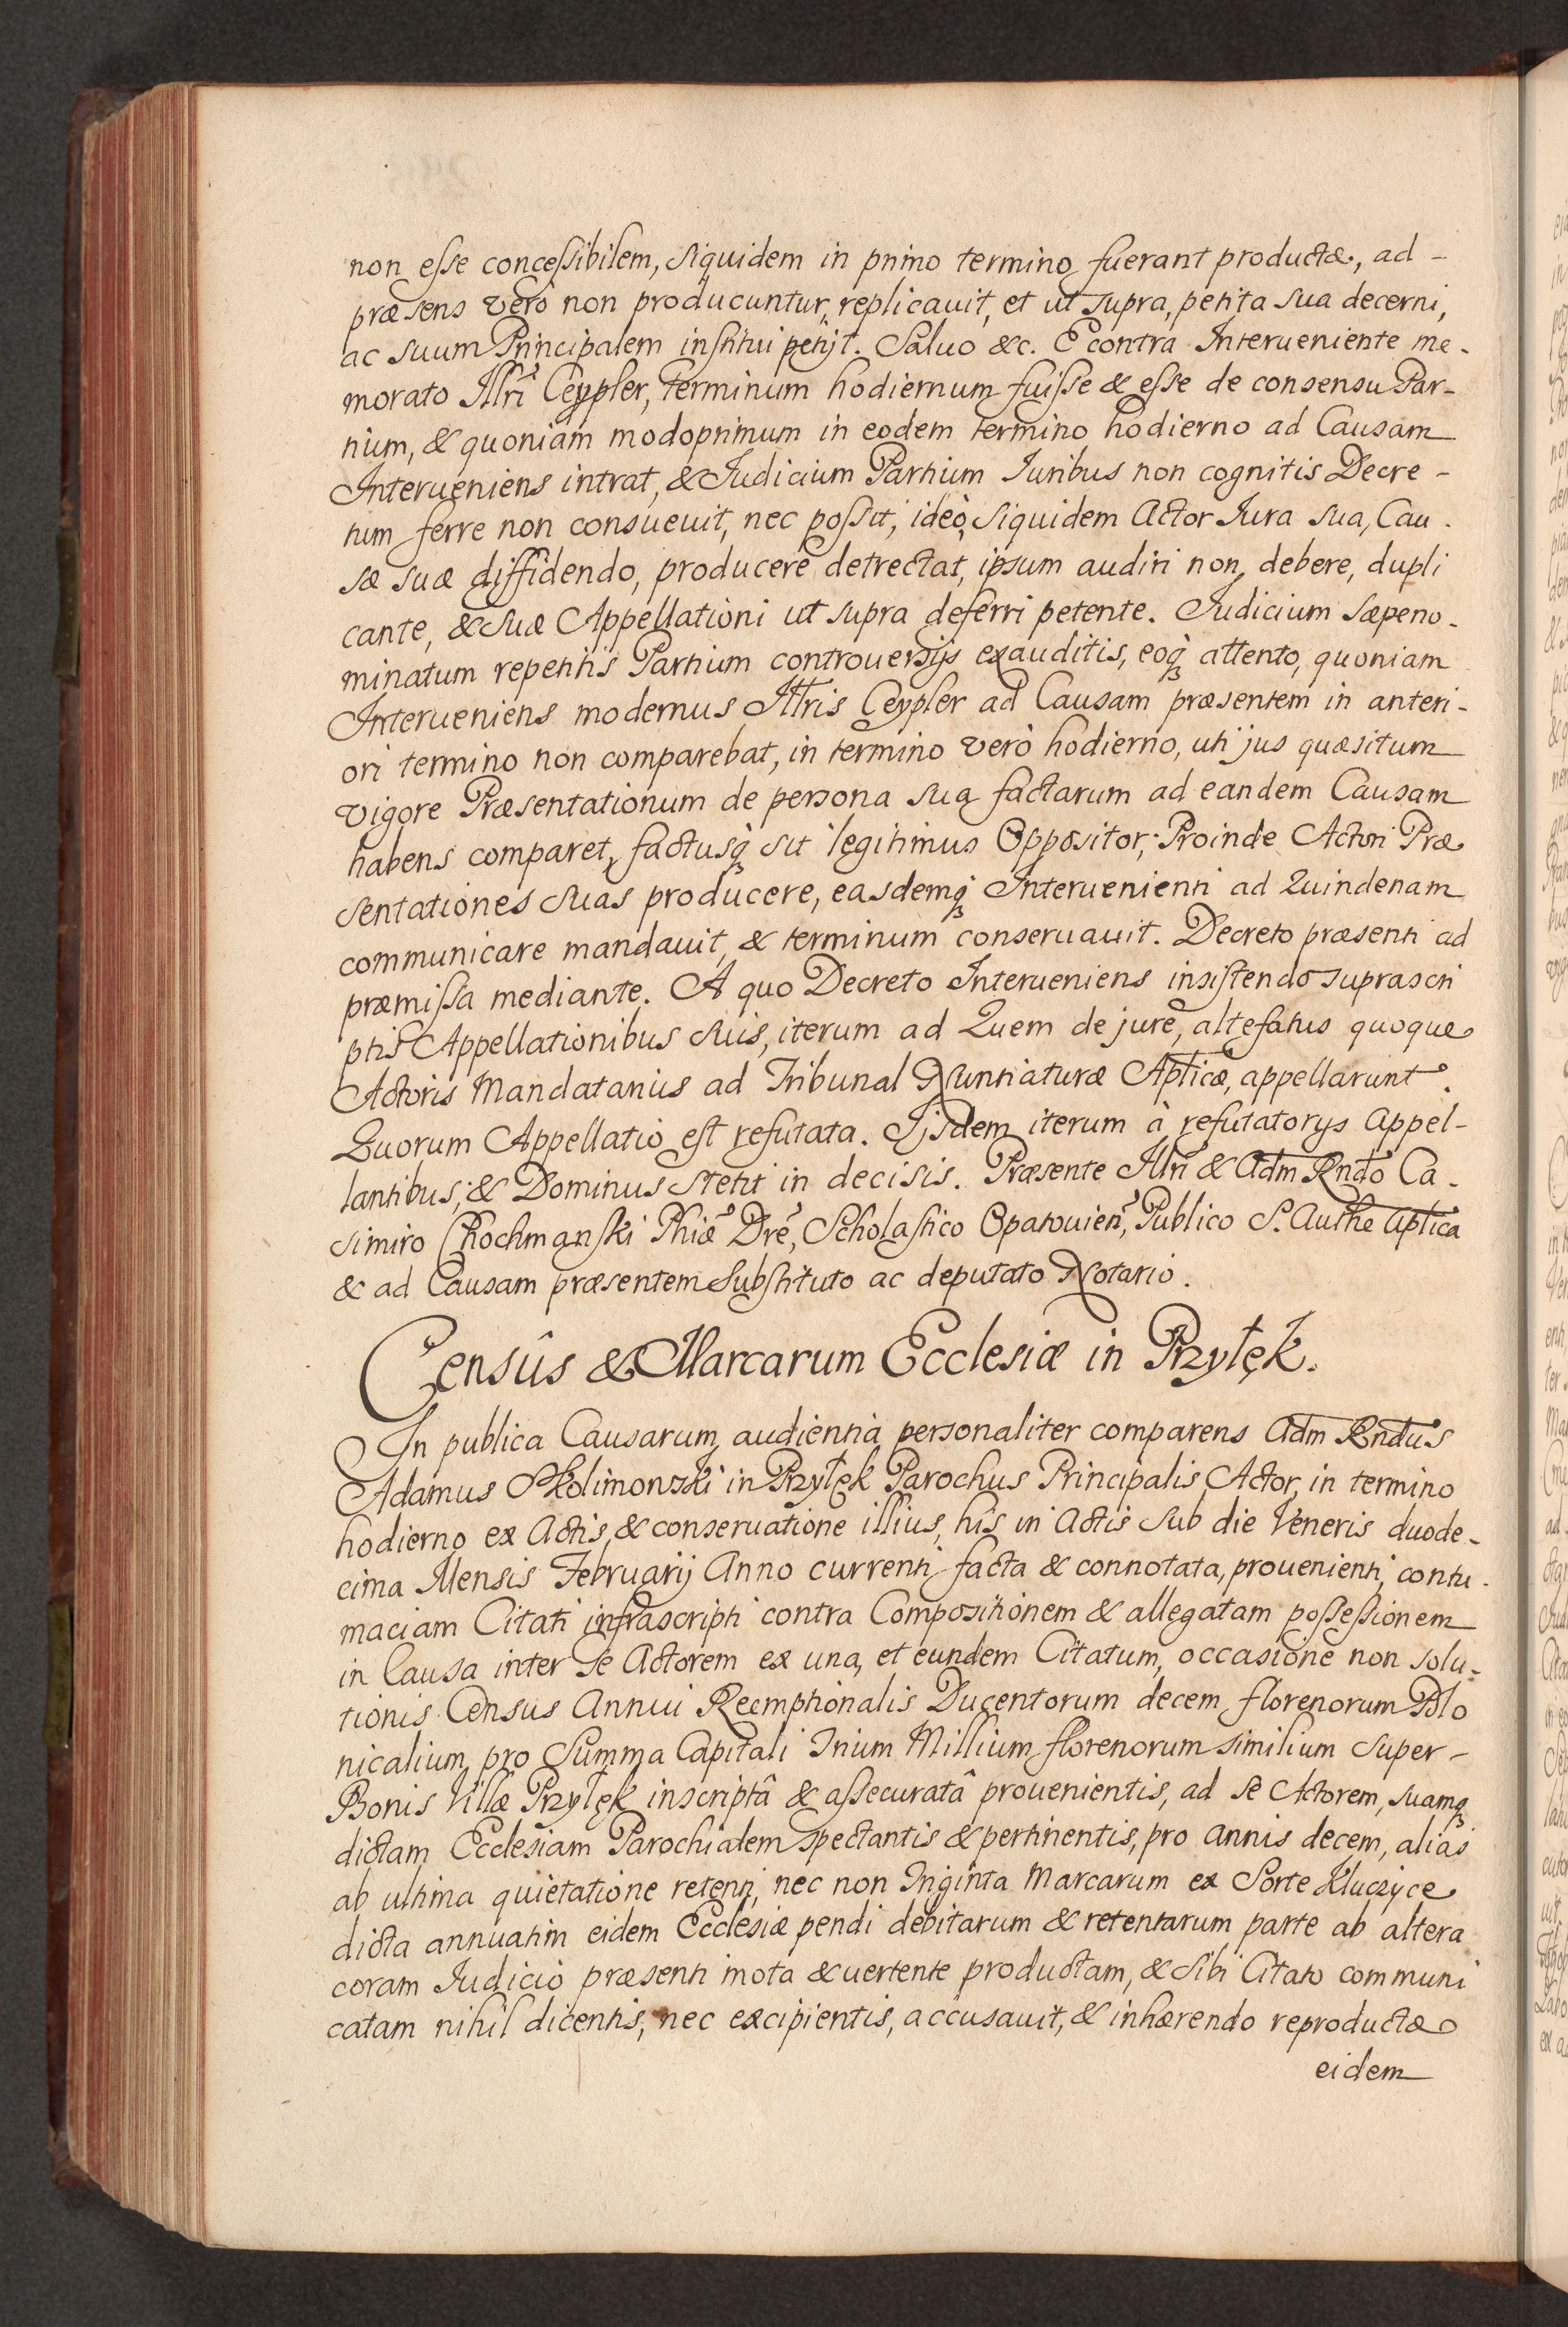 non esse concessibilem, siquidem in primo termino fuerant productæ, ad -
præsens verò non producuntur, replicauit, et ut supra, petita sua decerni,
ac suum Principalem institui petijt. Saluo &c. E contra Interueniente me-
morato Illri Ceypler, terminum hodiernum fuisse & esse de consensu Par-
tium, & quoniam modoprimum in eodem termino hodierno ad Causam
Interueniens intrat, & Iudicium Partium Iuribus non cognitis Decre-
tum ferre non consueuit, nec possit, ideò, siquidem Actor Iura sua, Cau-
sæ suæ diffidendo, producere detrectat, ipsum audiri non debere, dupli
cante, & suæ Appellationi ut supra deferri petente. Iudicium sæpeno-
minatum repetitis Partium controuersijs exauditis, eoq; attento, quoniam
Interueniens modernus Illris Ceypler ad Causam præsentem in anteri-
ori termino non comparebat, in termino verò hodierno, uti jus quæsitum
vigore Præsentationum de persona sua factarum ad eandem Causam
habens comparet, factusq; sit legitimus Oppositor; Proinde Actori Præ
sentationes suas producere, easdemq; Interuenienti ad Quindenam
communicare mandauit, & terminum conseruauit. Decreto præsenti ad
præmissa mediante. A quo Decreto Interueniens insistendo suprascri
ptis Appellationibus suis, iterum ad Quem de jure, altefatus quoque
Actoris Mandatarius ad Tribunal Nuntiaturæ Aplicæ, appellarunt.
Quorum Appellatio est refutata. Ijsdem iterum à refutatorijs Appel-
lantibus; & Dominus stetit in decisis. Præsente Illri & Adm Rndo Ca-
simiro Chochmanski Phiæ Dre, Scholastico Opatouien, Publico S. Authe Aplica
& ad Causam præsentem Substituto ac deputato Notario.
Censûs & Marcarum Ecclesiæ in Przyłęk.
In publica Causarum audientia personaliter comparens Adm Rndus
Adamus Skolimowski in Przyłęk Parochus Principalis Actor, in termino
hodierno ex Actis, & conseruatione illius, his in Actis sub die Veneris duode-
cima Mensis Februarij Anno currenti facta & connotata, prouenienti, contu-
maciam Citati infrascripti contra Compositionem & allegatam possessionem
in Causa inter se Actorem ex una, et eundem Citatum, occasione non solu-
tionis Census Annui Reemptionalis Ducentorum decem florenorum Polo
nicalium, pro Summa Capitali Trium Millium florenorum similium super -
Bonis Villæ Przyłęk inscriptâ & assecuratâ prouenientis, ad se Actorem, suamq;
dictam Ecclesiam Parochialem spectantis & pertinentis, pro annis decem, alias
ab ultima quietatione retenti, nec non Triginta Marcarum ex Sorte Kluczyce
dicta annuatim eidem Ecclesiæ pendi debitarum & retentarum parte ab altera
coram Iudicio præsenti mota & uertente productam, & sibi Citato communi
catam nihil dicentis, nec excipientis, accusauit, & inhærendo reproductæ
eidem